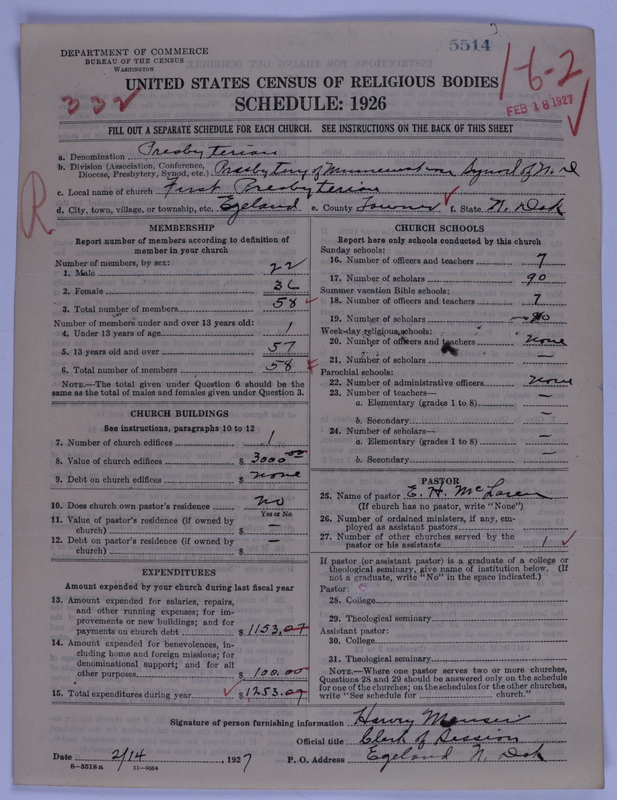 5514
DEPARTMENT OF COMMERCE
BUREAU OF THE CENSUS
WASHINGTON
1-6-2
UNITED STATES CENSUS OF RELIGIOUS BODIES
332
SCHEDULE: 1926
FEB 18 1927
FILL OUT A SEPARATE SCHEDULE FOR EACH CHURCH. SEE INSTRUCTIONS ON THE BACK OF THIS SHEET
a. Denomination Presbyterian
b. Division (Association, Conference, Diocese, Presbytery, Synod, etc.) Presbytery of Minnewaukan Synod of N. D
c. Local name of church First Presbyterian
R
d. City, town, village, or township, etc. Egeland e. County Towner f. State N. Dak
MEMBERSHIP
Report number of members according to definition of
member in your church
Number of members, by sex:
1. Male 22
2. Female 36
3. Total number of members 58
Number of members under and over 13 years old:
4. Under 13 years of age 1
5. 13 years old and over 57
6. Total number of members 58
NOTE.—The total given under Question 6 should be the
same as the total of males and females given under Question 3.
CHURCH BUILDINGS
See instructions, paragraphs 10 to 12
7. Number of church edifices 1
8. Value of church edifices $ 3000.00
9. Debt on church edifices $ none
10. Does church own pastor's residence? no
Yes or No
11. Value of pastor's residence (if owned by
church) $ —
12. Debt on pastor's residence (if owned by
church) $ —
EXPENDITURES
Amount expended by your church during last fiscal year
13. Amount expended for salaries, repairs,
and other running expenses; for im-
provements or new buildings; and for
payments on church debt $ 1153.07
14. Amount expended for benevolences, in-
cluding home and foreign missions; for
denominational support; and for all
other purposes 100.00
15. Total expenditures during year $ 1253.07
CHURCH SCHOOLS
Report here only schools conducted by this church
Sunday schools:
16. Number of officers and teachers 7
17. Number of scholars 90
Summer vacation Bible schools:
18. Number of officers and teachers 7
19. Number of scholars
Week-day religious schools:
20. Number of officers and teachers none
21. Number of scholars —
Parochial schools:
22. Number of administrative officers none
23. Number of teachers—
a. Elementary (grades 1 to 8) —
b. Secondary —
24. Number of scholars—
a. Elementary (grades 1 to 8) —
b. Secondary —
PASTOR
25. Name of pastor E. H. McLaren
(If church has no pastor, write "None")
26. Number of ordained ministers, if any, em-
ployed as assistant pastors
27. Number of other churches served by the
pastor or his assistants 1
If pastor (or assistant pastor) is a graduate of a college or
theological seminary, give name of institution below. (If
not a graduate, write "No" in the space indicated.)
Pastor:
28. College
29. Theological seminary
Assistant pastor:
30. College
31. Theological seminary
NOTE.—Where one pastor serves two or more churches,
Questions 28 and 29 should be answered only on the schedule
for one of the churches; on the schedules for the other churches,
write "See schedule for church."
Signature of person furnishing information Harry
Official title Clerk of Session
Date 2/14, 1927 P. O. Address Egeland N. Dak
8—5518 a 11—9554